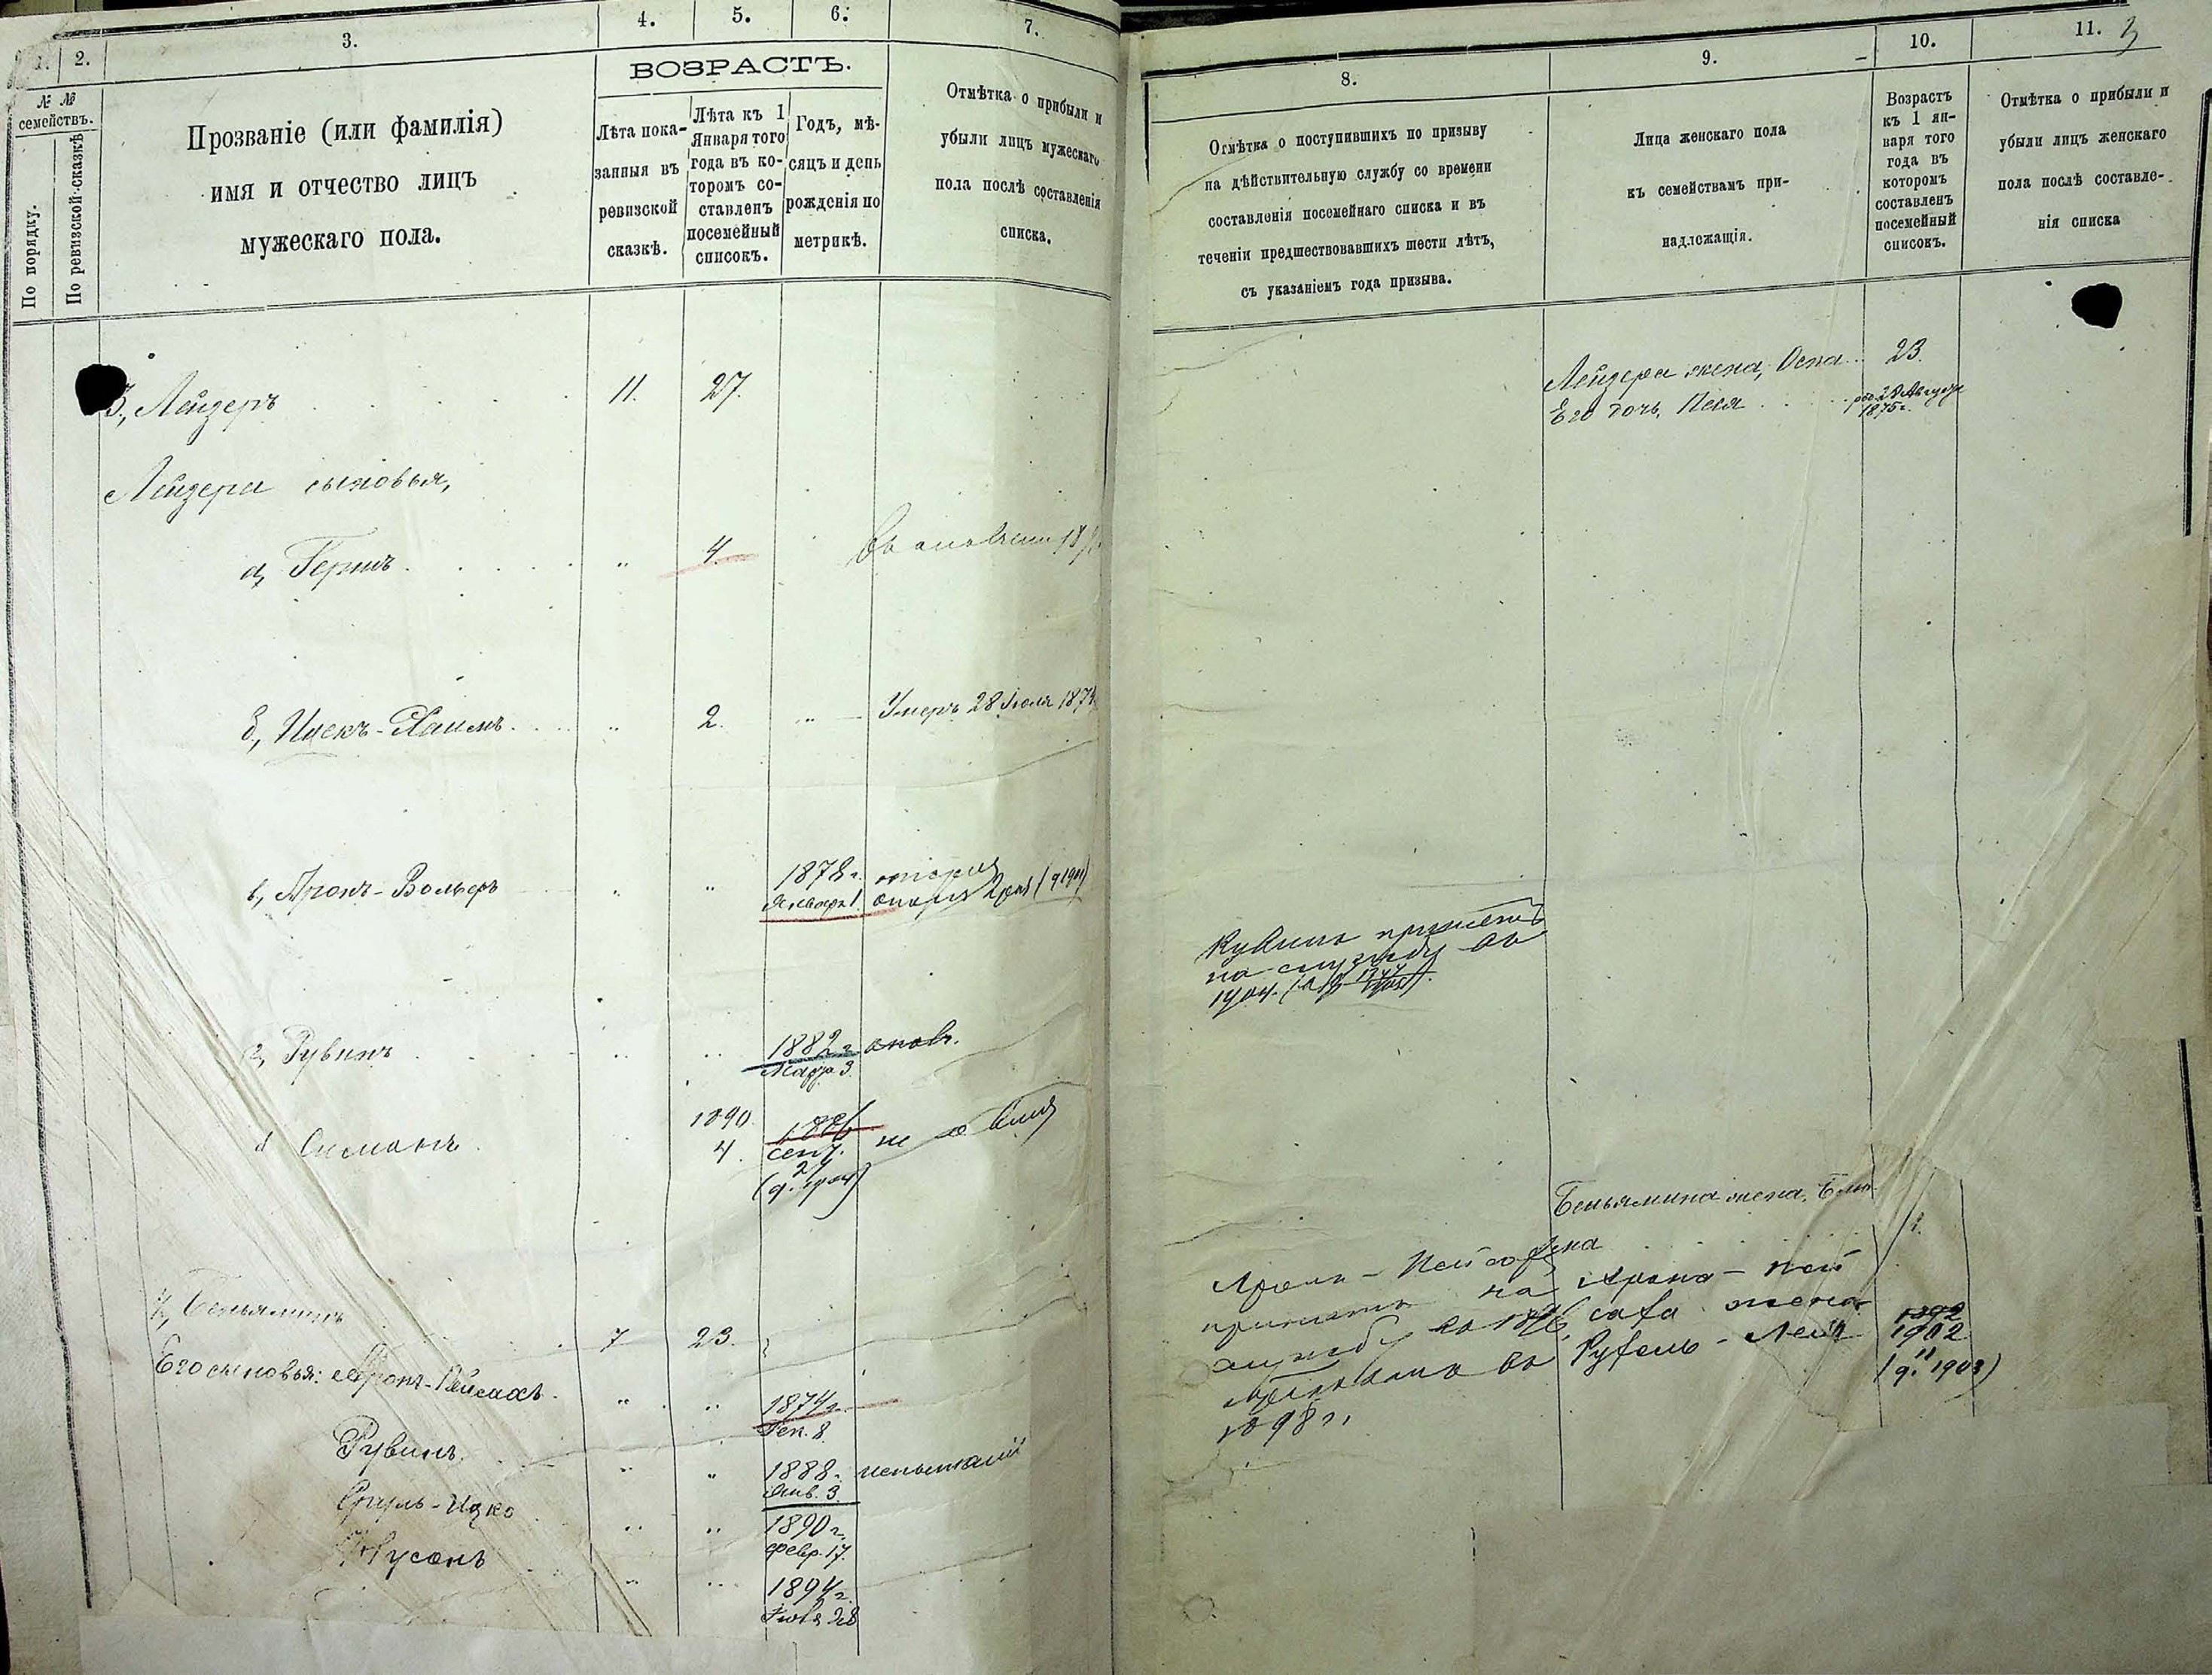 1. 2. 3. 4. 5. 6. 7.
№ №
семействъ.
По порядку.
По ревизской сказкѣ
Прозваніе (или фамилія)
имя и отчество лицъ
мужескаго пола.
ВОЗРАСТЪ.
Лѣта пока-
занныя въ
ревизской
сказкѣ.
Лѣта къ 1
Января того
года въ ко-
торомъ со-
ставленъ
посемейный
списокъ.
Годъ, мѣ-
сяцъ и день
рожденія по
метрикѣ.
Отмѣтка о прибыли и
убыли лицъ мужескаго
пола послѣ составленія
списка.
3, Лейзеръ 11. 27.
Лейзера сыновья,
а, Гершъ 4.
б, Ицекъ-Хаимъ 2. Умеръ 28 Іюля 1874
в, Аронъ-Вольфъ 1878 г.
Января 1.
г, Рувинъ 1882 г.
Марта 3.
1890 1886
д Симонъ 4. сент.
27
(д. 1904)
4, Беньяминъ 7 23.
Его сыновья: Аронъ-Пейсахъ 1874 г.
Ген. 8.
Рувинъ 1888 г.
Янв. 3.
Сруль-Ицко 1890 г.
Февр. 17.
Нусонъ 1894 г.
8. 9. 10. 11. 3
Отмѣтка о поступившихъ по призыву
на дѣйствительную службу со времени
составленія посемейнаго списка и въ
теченіи предшествовавшихъ шести лѣтъ,
съ указаніемъ года призыва.
Лица женскаго пола
къ семействамъ при-
надлежащія.
Возрастъ
къ 1 ян-
варя того
года въ
которомъ
составленъ
посемейный
списокъ.
Отмѣтка о прибыли и
убыли лицъ женскаго
пола послѣ составле-
нія списка
Лейзера жена, 23.
Его дочь, Песя
1875 г.
Рувинъ принятъ
на службу въ
1904.
Беньямина жена,
Аронъ-Пейсахъ
принятъ на
службу въ 1896,
въ
1898 г.
Арона-Пей
саха жена
Рухель-Лея
1902
(д. 11 1903)